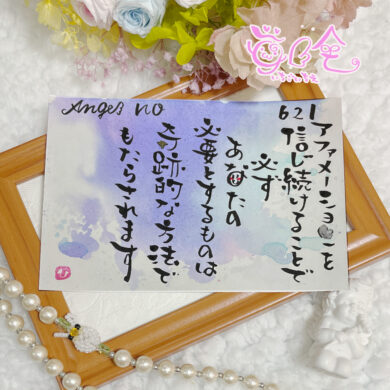 Angel no
621
アファメーションを
信じ続けることで
必ず
あなたの
必要とするものは
奇跡的な方法で
もたらされます